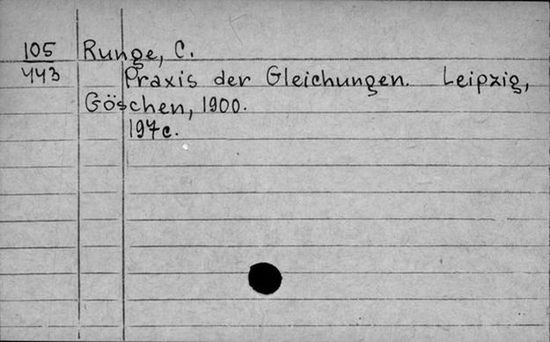 105 Runge, C.
443 Praxis der Gleichungen. Leipzig,
Göschen, 1900.
197c.